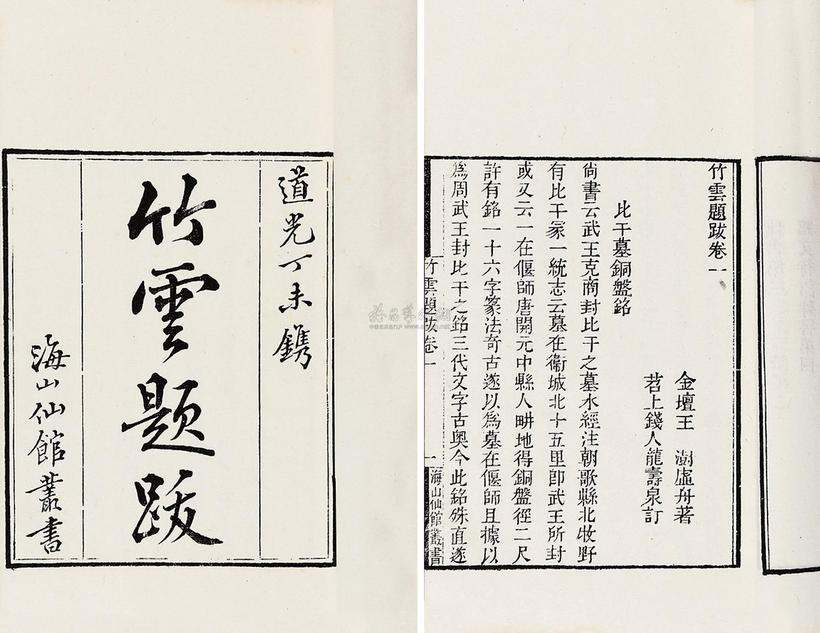 道光丁未鐫
竹雲題跋
海山仙館叢書
竹雲題跋卷一
金壇王 澍虛舟著
苕上錢人龍壽泉訂
比干墓銅盤銘
尚書云武王克商封比干之墓水經注朝歌縣北牧野
有比干冢一統志云墓在衞城北十五里卽武王所封
或又云一在偃師唐開元中縣人畊地得銅盤徑二尺
許有銘一十六字篆法奇古遂以爲墓在偃師且據以
爲周武王封比干之銘三代文字古奧今此銘殊直遂
竹雲題跋卷一
一
海山仙館叢書